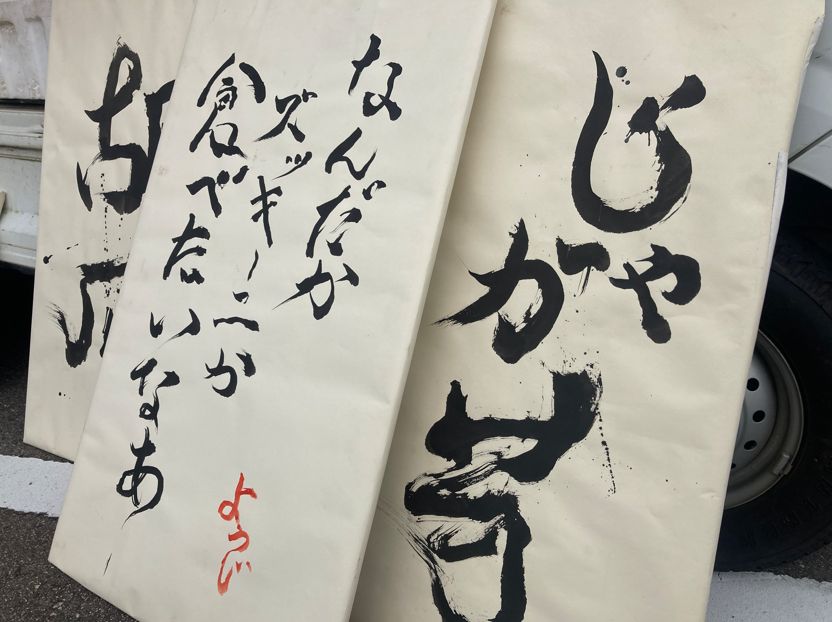 じゃ
が芋
なんだか
ズッキーニが
食べたいなあ
ようじ